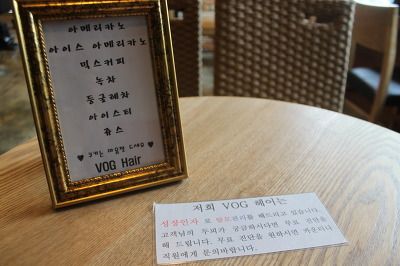 아메리카노
아이스 아메리카노
믹스커피
녹차
둥글레차
아이스티
쥬스
♥ 드세요 ♥
VOG Hair
저희 VOG 헤어는
성장인자 로 탈모관리를 해드리고 있습니다.
고객님의 두피가 궁금하시다면 무료 진단을
해 드립니다. 무료 진단을 원하시면 카운터나
직원에게 문의바랍니다.